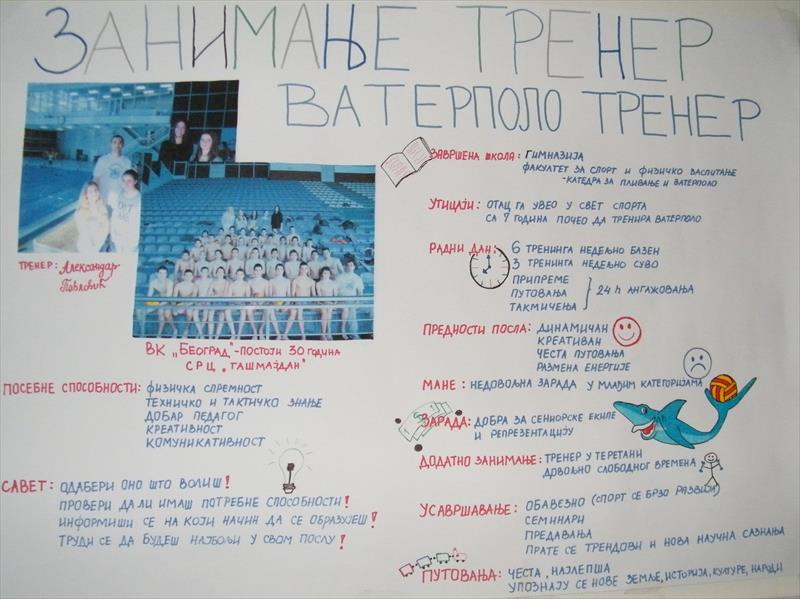 ЗАНИМАЊЕ ТРЕНЕР
ВАТЕРПОЛО ТРЕНЕР
ТРЕНЕР: Александар
Павловић
ВК „БЕОГРАД" - ПОСТОЈИ 30 ГОДИНА
СРЦ „ТАШМАЈДАН"
ПОСЕБНЕ СПОСОБНОСТИ: ФИЗИЧКА СПРЕМНОСТ
ТЕХНИЧКО И ТАКТИЧКО ЗНАЊЕ
ДОБАР ПЕДАГОГ
КРЕАТИВНОСТ
КОМУНИКАТИВНОСТ
САВЕТ: ОДАБЕРИ ОНО ШТО ВОЛИШ!
ПРОВЕРИ ДА ЛИ ИМАШ ПОТРЕБНЕ СПОСОБНОСТИ!
ИНФОРМИШИ СЕ НА КОЈИ НАЧИН ДА СЕ ОБРАЗУЈЕШ!
ТРУДИ СЕ ДА БУДЕШ НАЈБОЉИ У СВОМ ПОСЛУ!
ЗАВРШЕНА ШКОЛА: ГИМНАЗИЈА
ФАКУЛТЕТ ЗА СПОРТ И ФИЗИЧКО ВАСПИТАЊЕ
-КАТЕДРА ЗА ПЛИВАЊЕ И ВАТЕРПОЛО
УТИЦАЈИ: ОТАЦ ГА УВЕО У СВЕТ СПОРТА
СА 7 ГОДИНА ПОЧЕО ДА ТРЕНИРА ВАТЕРПОЛО
РАДНИ ДАН: 6 ТРЕНИНГА НЕДЕЉНО БАЗЕН
3 ТРЕНИНГА НЕДЕЉНО СУВО
ПРИПРЕМЕ
ПУТОВАЊА } 24 h АНГАЖОВАЊА
ТАКМИЧЕЊА
ПРЕДНОСТИ ПОСЛА: ДИНАМИЧАН
КРЕАТИВАН
ЧЕСТА ПУТОВАЊА
РАЗМЕНА ЕНЕРГИЈЕ
МАНЕ: НЕДОВОЉНА ЗАРАДА У МЛАЂИМ КАТЕГОРИЈАМА
ЗАРАДА: ДОБРА ЗА СЕНИОРСКЕ ЕКИПЕ
И РЕПРЕЗЕНТАЦИЈУ
ДОДАТНО ЗАНИМАЊЕ: ТРЕНЕР У ТЕРЕТАНИ
ДОВОЉНО СЛОБОДНОГ ВРЕМЕНА
УСАВРШАВАЊЕ: ОБАВЕЗНО (СПОРТ СЕ БРЗО РАЗВИЈА)
СЕМИНАРИ
ПРЕДАВАЊА
ПРАТЕ СЕ ТРЕНДОВИ И НОВА НАУЧНА САЗНАЊА
ПУТОВАЊА: ЧЕСТА, НАЈЛЕПША
УПОЗНАЈУ СЕ НОВЕ ЗЕМЉЕ, ИСТОРИЈА, КУЛТУРЕ, НАРОДИ